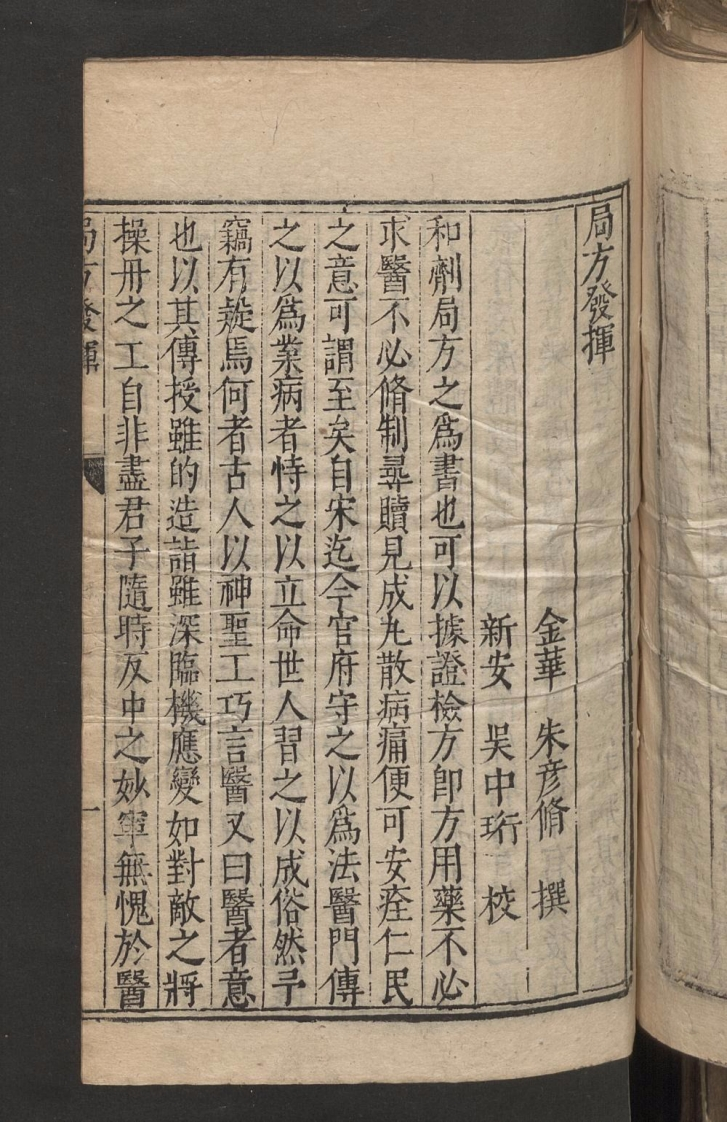 局方發揮
金華 朱彦脩 撰
新安 吳中珩 校
和劑局方之爲書也可以據證檢方卽方用藥不必
求醫不必脩制尋贖見成丸散病痛便可安痊仁民
之意可謂至矣自宋迄今官府守之以爲法醫門傳
之以爲業病者恃之以立命世人習之以成俗然予
竊有疑焉何者古人以神聖工巧言醫又曰醫者意
也以其傳授雖的造詣雖深臨機應變如對敵之將
操舟之工自非盡君子隨時反中之妙寧無愧於醫
局方發揮
一